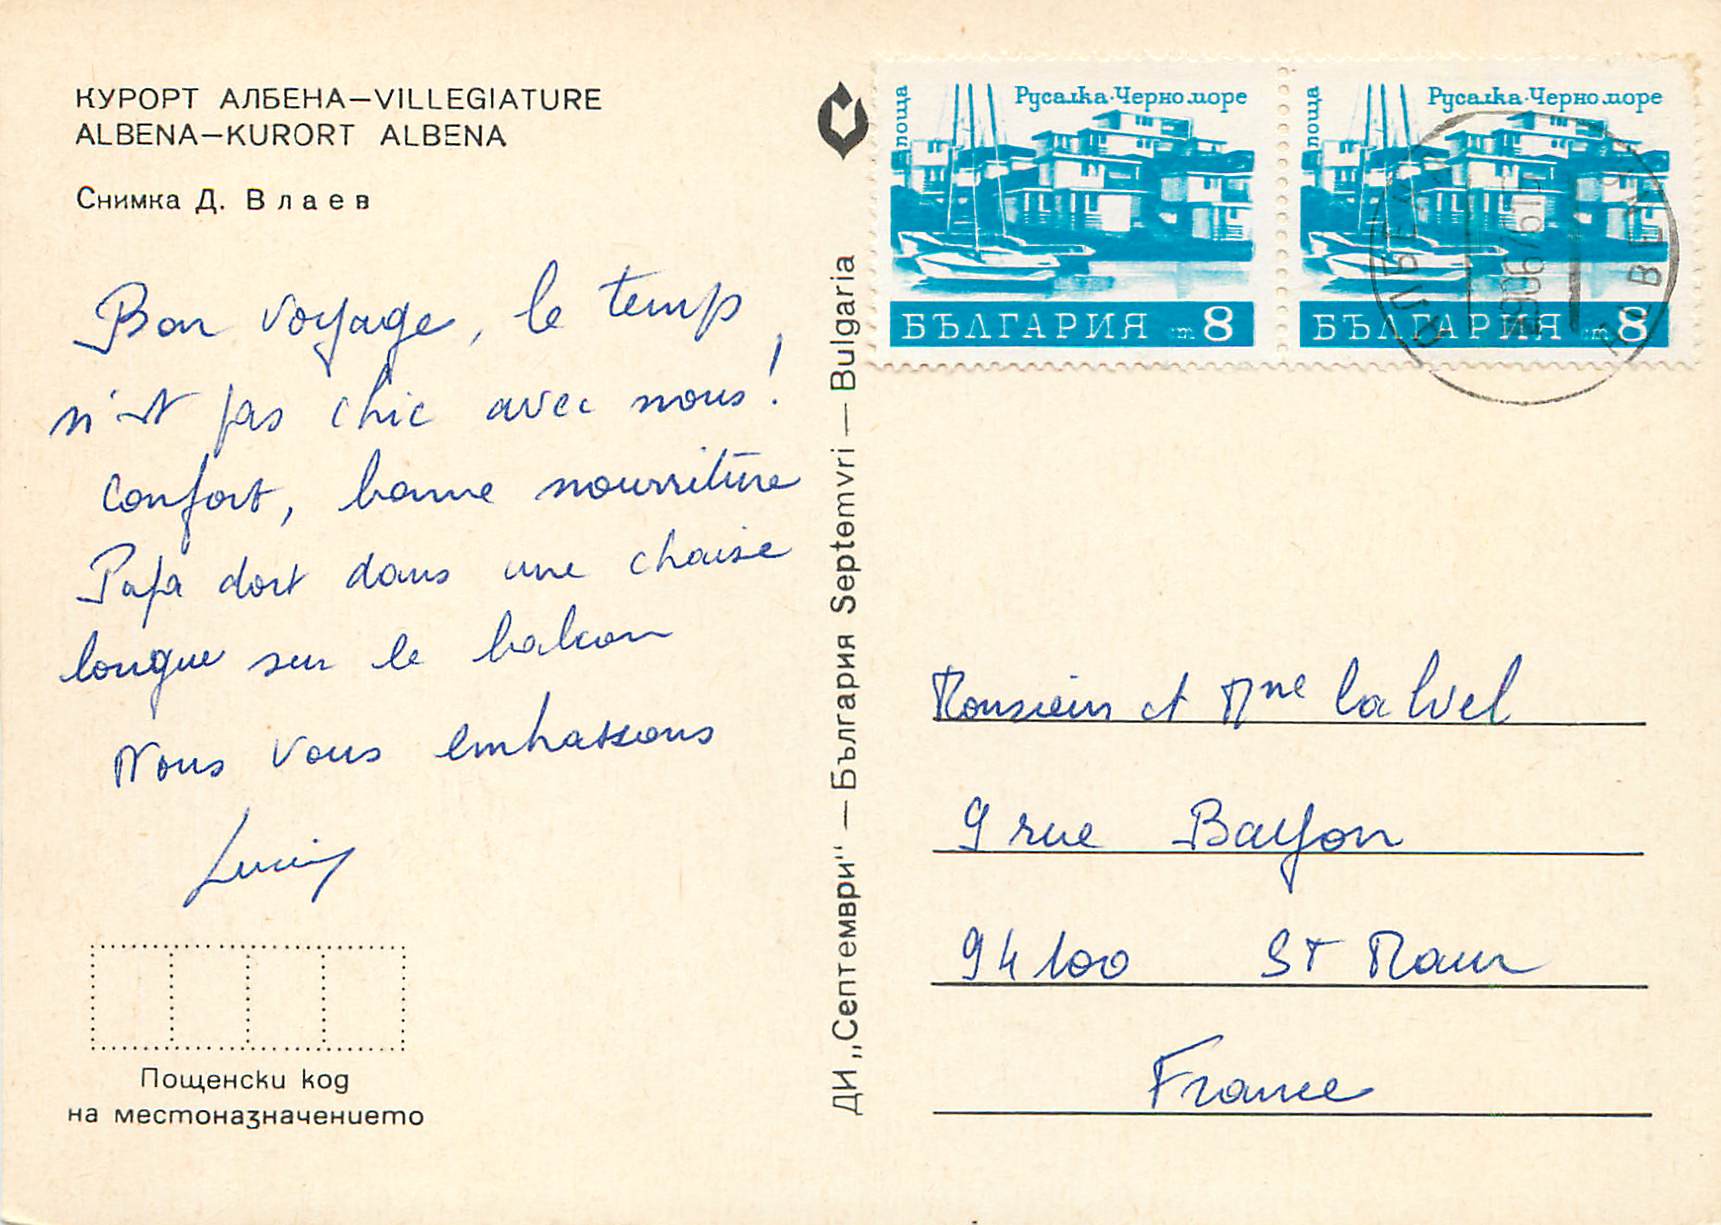 КУРОРТ АЛБЕНА–VILLEGIATURE
ALBENA–KURORT ALBENA
Снимка Д. Влаев
Bon voyage, le temps
n'est pas chic avec nous!
Confort, bonne nourriture
Papa dort dans une chaise
longue sur le balcon
Nous vous embrassons
Пощенски код
на местоназначението
ДИ „Септември" — България Septemvri — Bulgaria
поща
Русалка·Черно море
БЪЛГАРИЯ ст 8
поща
Русалка·Черно море
БЪЛГАРИЯ ст 8
Monsieur et Mme Lalvel
9 rue Bayon
94100 St Maur
France